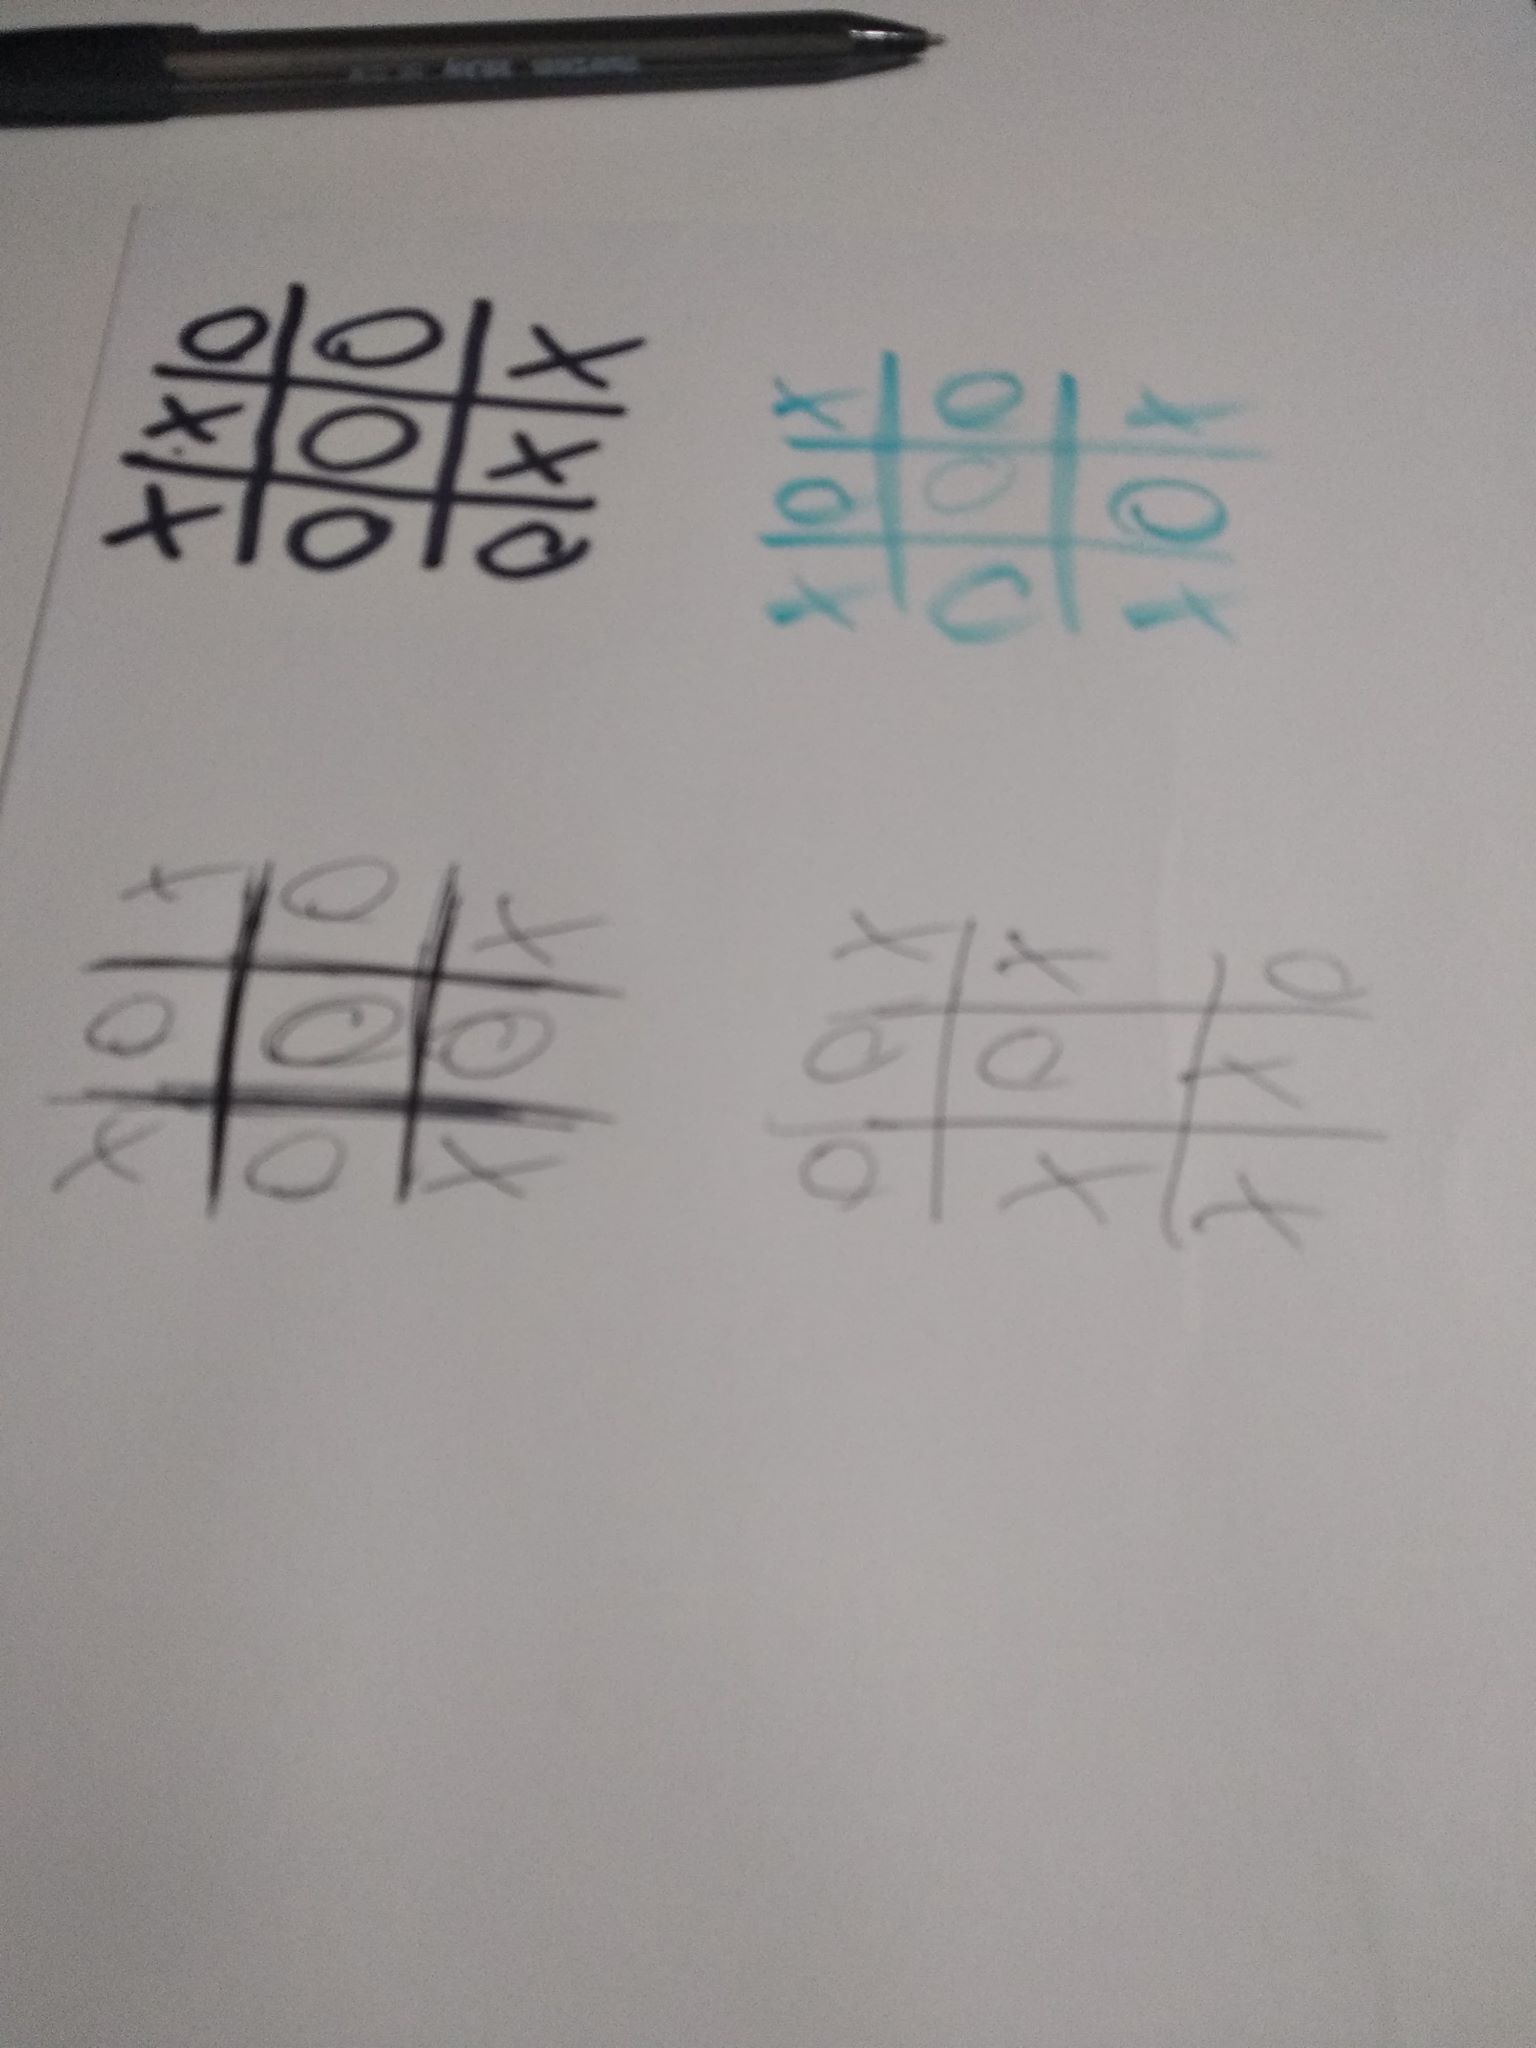 O O X
X O X
X O O
X O X
O O O
X O X
X O X
O O O
X O X
X X O
O O X
O X X